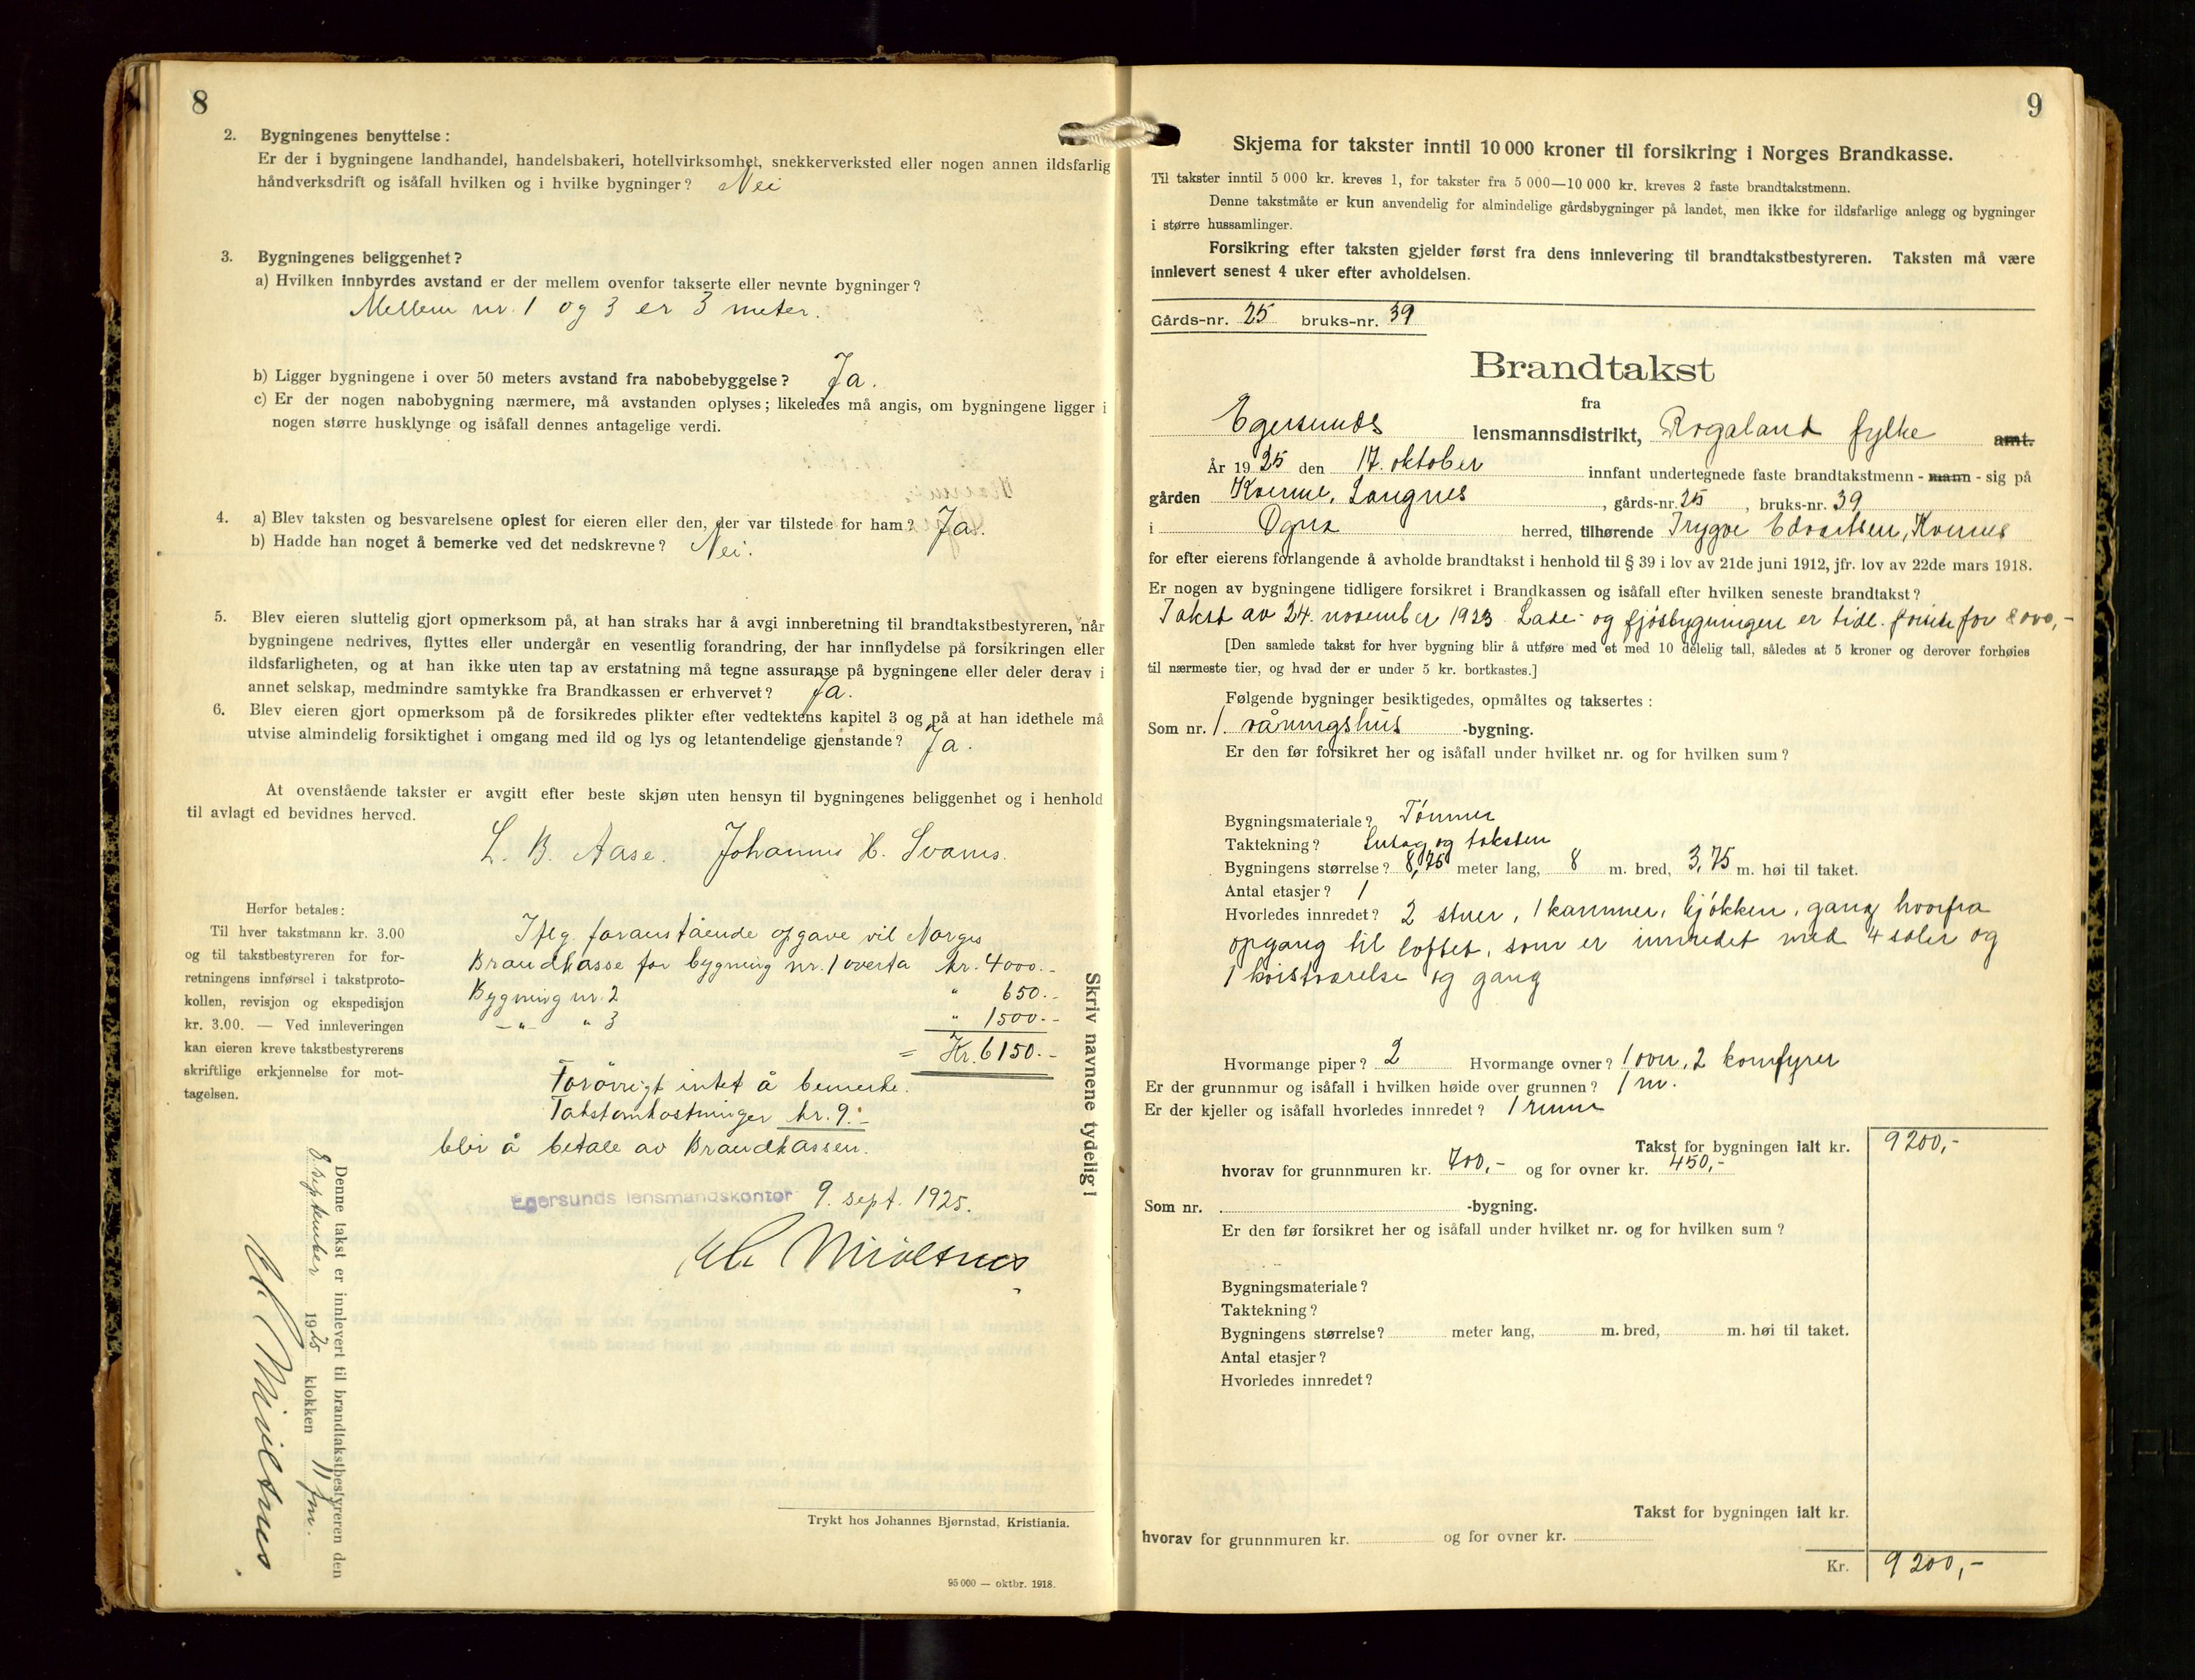 8
2. Bygningenes benyttelse:
Er der i bygningene landhandel, handelsbakeri, hotellvirksomhet, snekkerverksted eller nogen annen ildsfarlig
håndverksdrift og isåfall hvilken og i hvilke bygninger? Nei
3. Bygningenes beliggenhet?
a) Hvilken innbyrdes avstand er der mellem ovenfor takserte eller nevnte bygninger?
Mellem nr. 1 og 3 er 3 meter.
b) Ligger bygningene i over 50 meters avstand fra nabobebyggelse? Ja.
c) Er der nogen nabobygning nærmere, må avstanden oplyses; likeledes må angis, om bygningene ligger i
nogen større husklynge og isåfall dennes antagelige verdi.
4. a) Blev taksten og besvarelsene oplest for eieren eller den, der var tilstede for ham? Ja.
b) Hadde han noget å bemerke ved det nedskrevne? Nei.
5. Blev eieren sluttelig gjort opmerksom på, at han straks har å avgi innberetning til brandtakstbestyreren, når
bygningene nedrives, flyttes eller undergår en vesentlig forandring, der har innflydelse på forsikringen eller
ildsfarligheten, og at han ikke uten tap av erstatning må tegne assuranse på bygningene eller deler derav i
annet selskap, medmindre samtykke fra Brandkassen er erhvervet? Ja.
6. Blev eieren gjort opmerksom på de forsikredes plikter efter vedtektens kapitel 3 og på at han idethele må
utvise almindelig forsiktighet i omgang med ild og lys og letantendelige gjenstande? Ja.
At ovenstående takster er avgitt efter beste skjøn uten hensyn til bygningenes beliggenhet og i henhold
til avlagt ed bevidnes herved.
L. B. Aase. Johannes H. Svanes.
Herfor betales:
Til hver takstmann kr. 3.00
og til takstbestyreren for for-
retningens innførsel i takstproto-
kollen, revisjon og ekspedisjon
kr. 3.00. — Ved innleveringen
kan eieren kreve takstbestyrerens
skriftlige erkjennelse for mot-
tagelsen.
Iflg. foranstående opgave vil Norges
Brandkasse for bygning nr. 1 overta kr. 4000.-
Bygning nr. 2 " 650.-
-"- " 3 " 1500.-
= Kr. 6150.-
Forövrigt intet å bemerke.
Takstomkostninger kr. 9.-
blir å betale av Brandkassen.
Egersunds lensmandskontor 9. sept. 1925.
Skriv navnene tydelig!
Denne takst er innlevert til brandtakstbestyreren den
8 september 1925 klokken 11 fm.
Trykt hos Johannes Bjørnstad, Kristiania.
95 000 — oktbr. 1918.
9
Skjema for takster inntil 10 000 kroner til forsikring i Norges Brandkasse.
Til takster inntil 5 000 kr. kreves 1, for takster fra 5 000—10 000 kr. kreves 2 faste brandtakstmenn.
Denne takstmåte er kun anvendelig for almindelige gårdsbygninger på landet, men ikke for ildsfarlige anlegg og bygninger
i større hussamlinger.
Forsikring efter taksten gjelder først fra dens innlevering til brandtakstbestyreren. Taksten må være
innlevert senest 4 uker efter avholdelsen.
Gårds-nr. 25 bruks-nr. 39
Brandtakst
fra
Egersunds lensmannsdistrikt, Rogaland fylke amt.
År 1925 den 17. oktober innfant undertegnede faste brandtakstmenn - mann - sig på
gården Kverme, Langnes, gårds-nr. 25, bruks-nr. 39
i Ogna herred, tilhørende Trygve Edvartsen,
for efter eierens forlangende å avholde brandtakst i henhold til § 39 i lov av 21de juni 1912, jfr. lov av 22de mars 1918.
Er nogen av bygningene tidligere forsikret i Brandkassen og isåfall efter hvilken seneste brandtakst?
Takst av 24. november 1923. Lade- og fjösbygningen er tidl. for 8000,-
[Den samlede takst for hver bygning blir å utføre med et med 10 delelig tall, således at 5 kroner og derover forhøies
til nærmeste tier, og hvad der er under 5 kr. bortkastes.]
Følgende bygninger besiktigedes, opmåltes og taksertes:
Som nr. 1. våningshus -bygning.
Er den før forsikret her og isåfall under hvilket nr. og for hvilken sum?
Bygningsmateriale? Tömmer
Taktekning? Sutag og taksten
Bygningens størrelse? 8,75 meter lang, 8 m. bred, 3,75 m. høi til taket.
Antal etasjer? 1
Hvorledes innredet? 2 stuer, 1 kammer, kjökken, gang hvorfra
opgang til loftet, som er innredet med 4 saler og
1 kvistværelse og gang
Hvormange piper? 2 Hvormange ovner? 1 ovn, 2 komfyrer
Er der grunnmur og isåfall i hvilken høide over grunnen? 1 m.
Er der kjeller og isåfall hvorledes innredet? 1 rum
Takst for bygningen ialt kr. 9200,-
hvorav for grunnmuren kr. 700,- og for ovner kr. 450,-
Som nr. -bygning.
Er den før forsikret her og isåfall under hvilket nr. og for hvilken sum?
Bygningsmateriale?
Taktekning?
Bygningens størrelse? meter lang, m. bred, m. høi til taket.
Antal etasjer?
Hvorledes innredet?
Takst for bygningen ialt kr.
hvorav for grunnmuren kr. og for ovner kr.
Kr. 9200,-